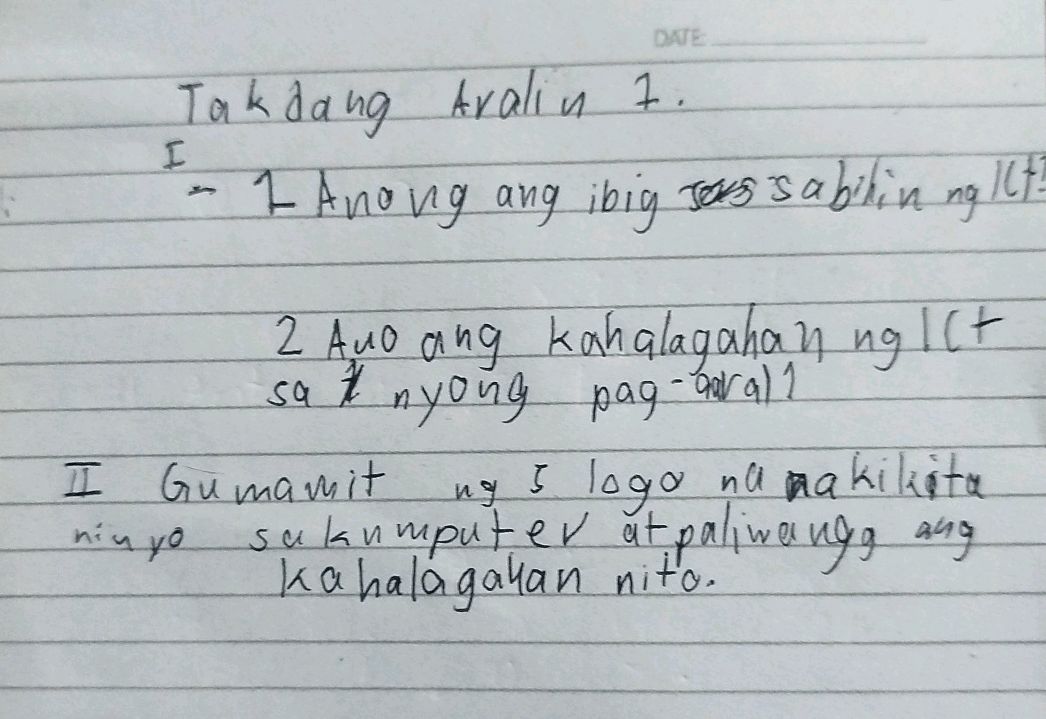 DATE:
Takdang Aralin 1.
I
- 1 Anong ang ibig sabihin ng ICt?
2 Ano ang kahalagahan ng ICt
sa inyong pag-aaral?
II Gumamit ng 5 logo na nakikita
ninyo sa kumputer at paliwangg ang
kahalagahan nito.